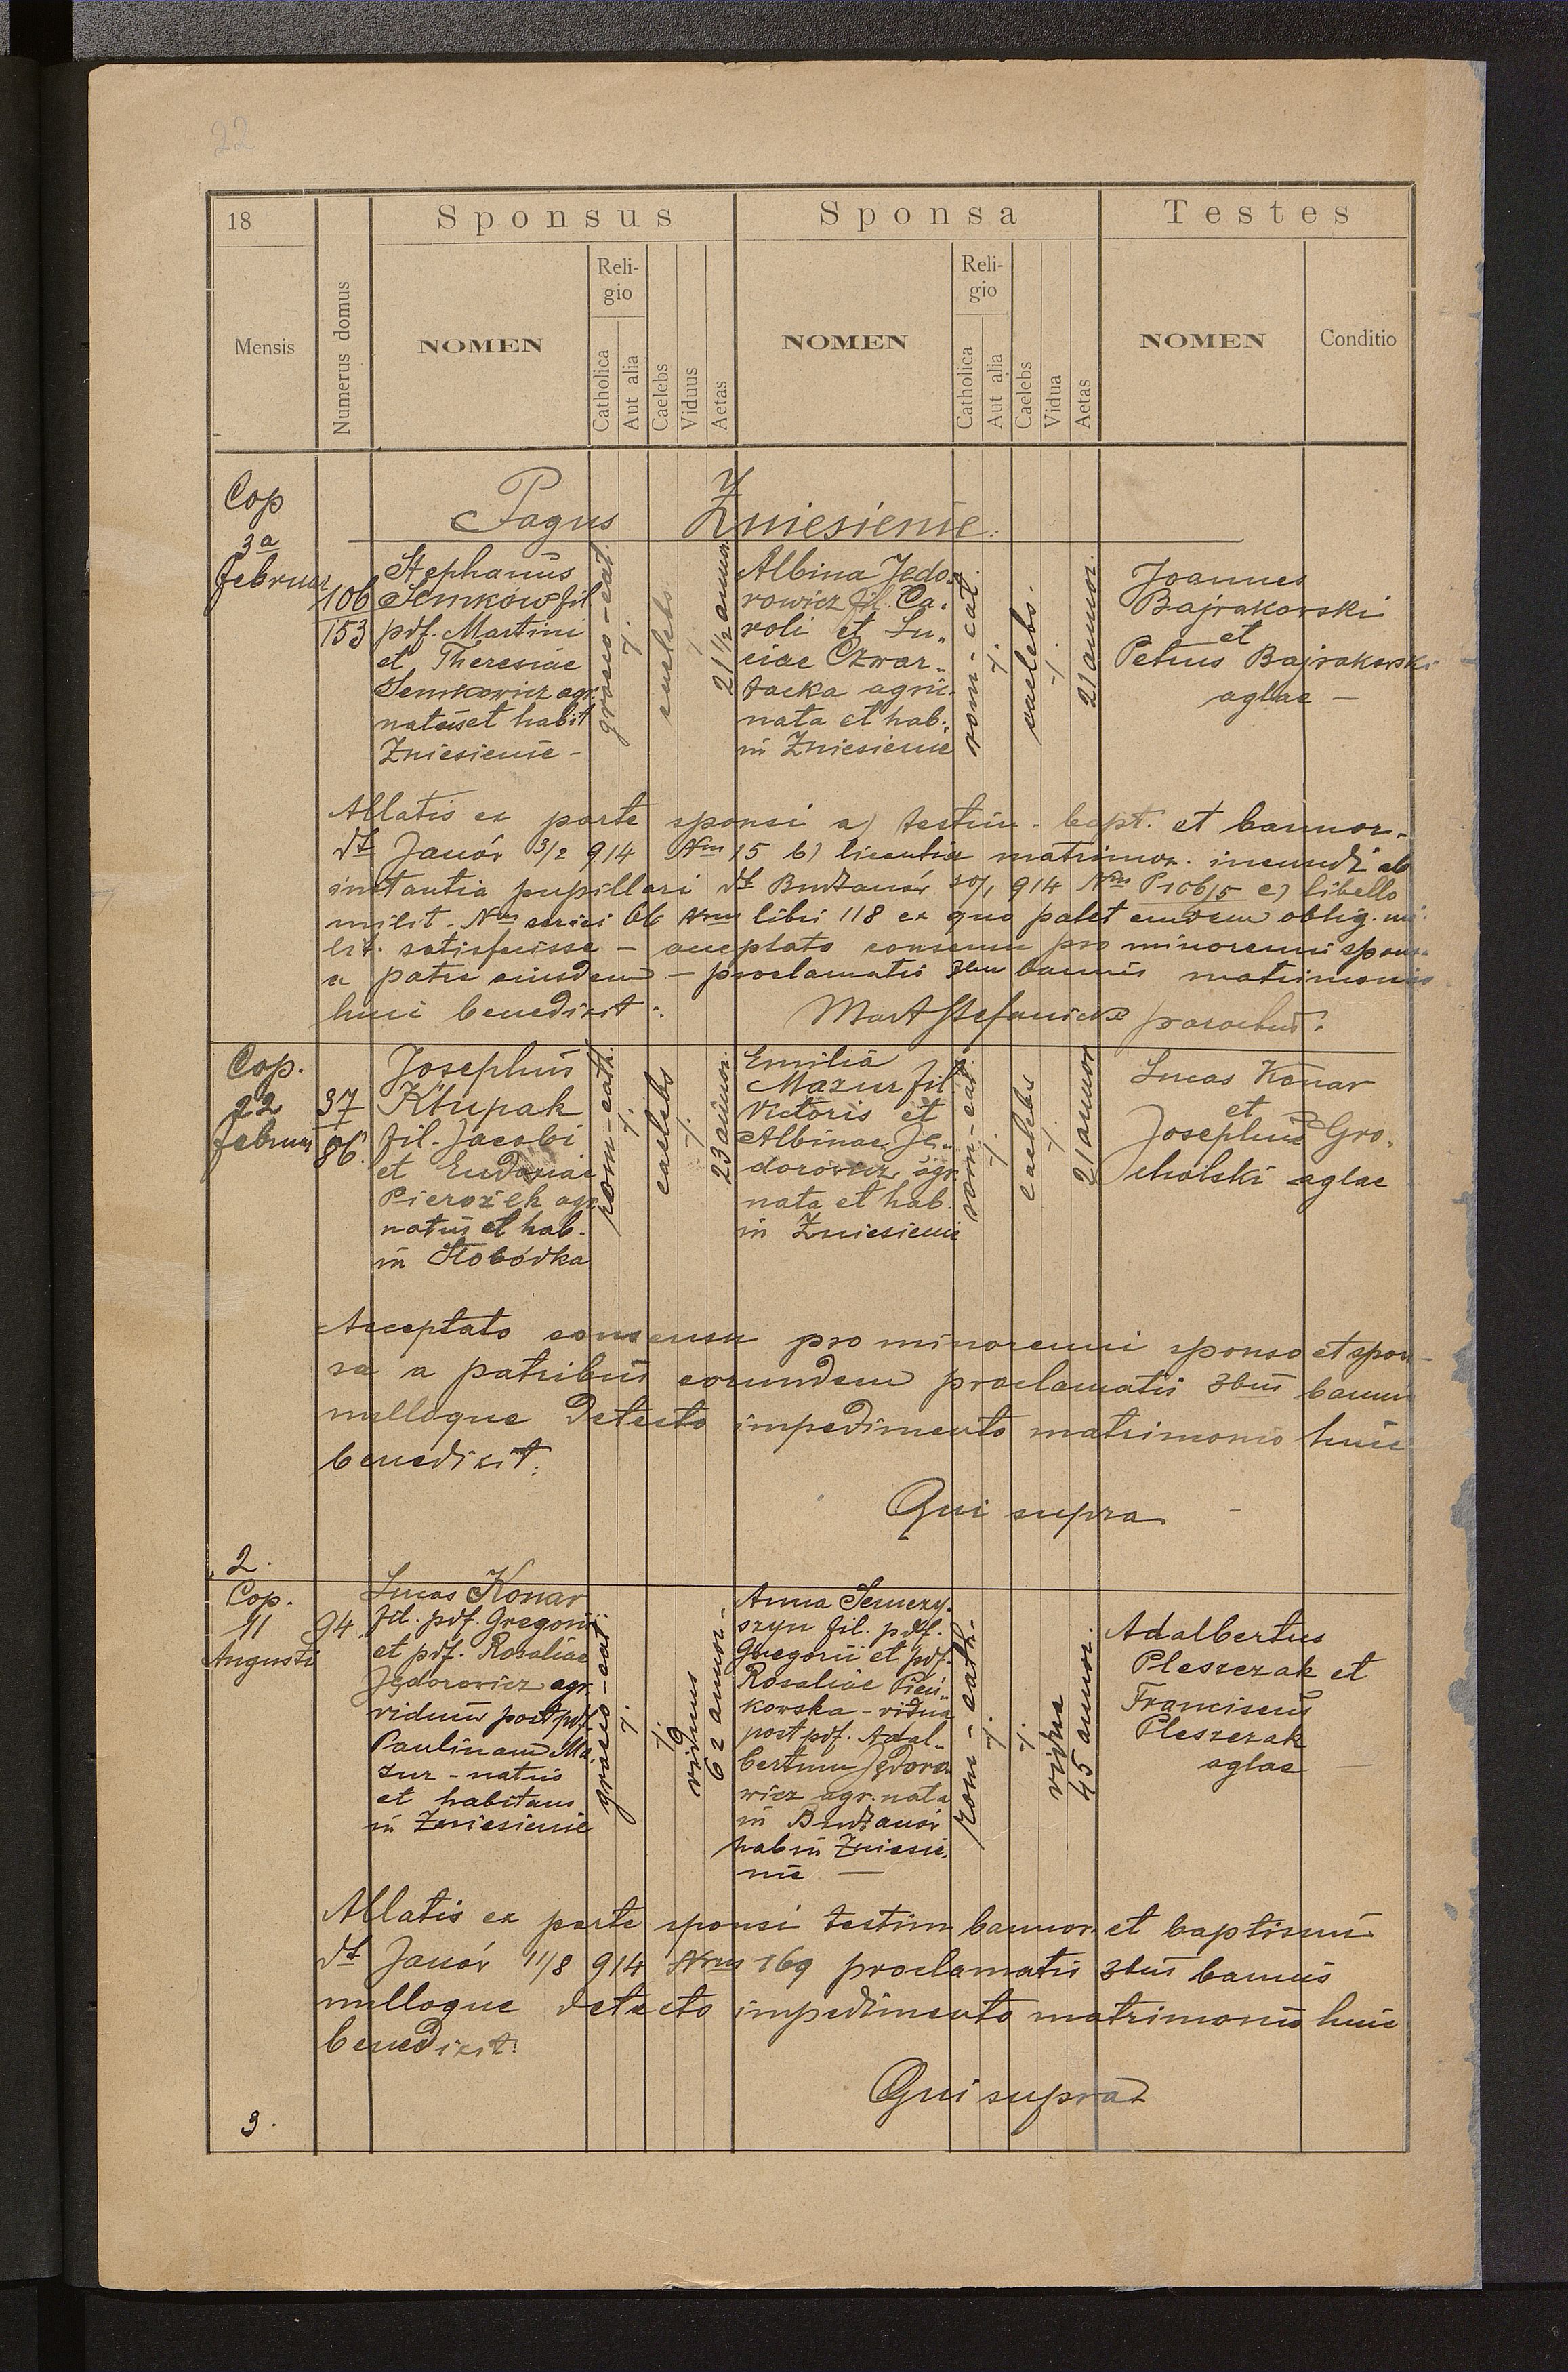 22
18
Sponsus
Sponsa
Testes
Mensis
Numerus domus
NOMEN
Reli-
gio
Catholica
Aut alia
Caelebs
Viduus
Aetas
NOMEN
Reli-
gio
Catholica
Aut alia
Caelebs
Vidua
Aetas
NOMEN
Conditio
Pagus Zniesienie
Cop
3a
Februar
106
153
Stephanus
Semków fil
pdf. Martini
et Theresiae
Semkowicz agr.
natus et habit
Zniesienie -
graeco-cat.
caelebs
21 1/2 annor.
Albina Jedo-
rowicz fil. Ca-
roli et Lu-
ciae Czwar-
tacka agric.
nata et hab.
in Zniesienie
rom-cat.
caelebs.
21 annor.
Joannes
Bajrakowski
et
Petrus Bajrakowski
aglae -
Allatis ex parte sponsi a) testim. bapt. et bannor.
dt Janów 3/2 914 Nrm 15 b) licentia matrimon. ineundi ab
instantia pupillari dt Budzanów 914 Nrm P 106/5 c) libello
milit. Nrm seriei 66 Nrm libri 118 ex quo patet eundem oblig. mi-
lit. satisfecisse - acceptato consensu pro minorenni spon-
a patre eiusdem - proclamatis bannis matrimonio
huic benedixit.
Mart Stefanicki parochus.
Cop.
22
Februar
37
86.
Josephus
Kłupak
fil. Jacobi
et Eudoxiae
Pierożek agr.
natus et hab.
in Słobódka
rom-cath.
caelebs
23 annor.
Emilia
Mazur fil.
Victoris et
Albinae Je-
dorowicz agr.
nata et hab.
in Zniesienie
rom-cat.
caelebs
21 annor
Lucas Konar
et
Josephus Gro-
cholski aglae
Acceptato consensu pro minorenni sponso et spon-
sa a patribus eorundem proclamatis 3bus bannis
nulloque detecto impedimento matrimonio huic
benedixit.
Qui supra
2.
Cop.
11
Augusti
94
Lucas Konar
fil. pdf. Gregorii
et pdf. Rosaliae
Jędorowicz agr.
viduus post pdf.
Paulinam Ma-
zur - natus
et habitans
in Zniesienie
graeco-cat
viduus
62 annor-
Anna Semczy-
szyn fil. pdf.
Gregorii et pdf.
Rosaliae Pień-
kowska - vidua
post pdf. Adal-
bertum Jędoro-
wicz agr. nata
in Budzanów
hab in Zniesie-
nie -
rom-cath.
vidua
45 annor.
Adalbertus
Pleszczak et
Franciscus
Pleszczak
aglae -
Allatis ex parte sponsi testim bannor. et baptismi
dt Janów 11/8 914 Nrm 169 proclamatis 3bus bannis
nulloque detecto impedimento matrimonio huic
benedixit.
Qui supra
3.